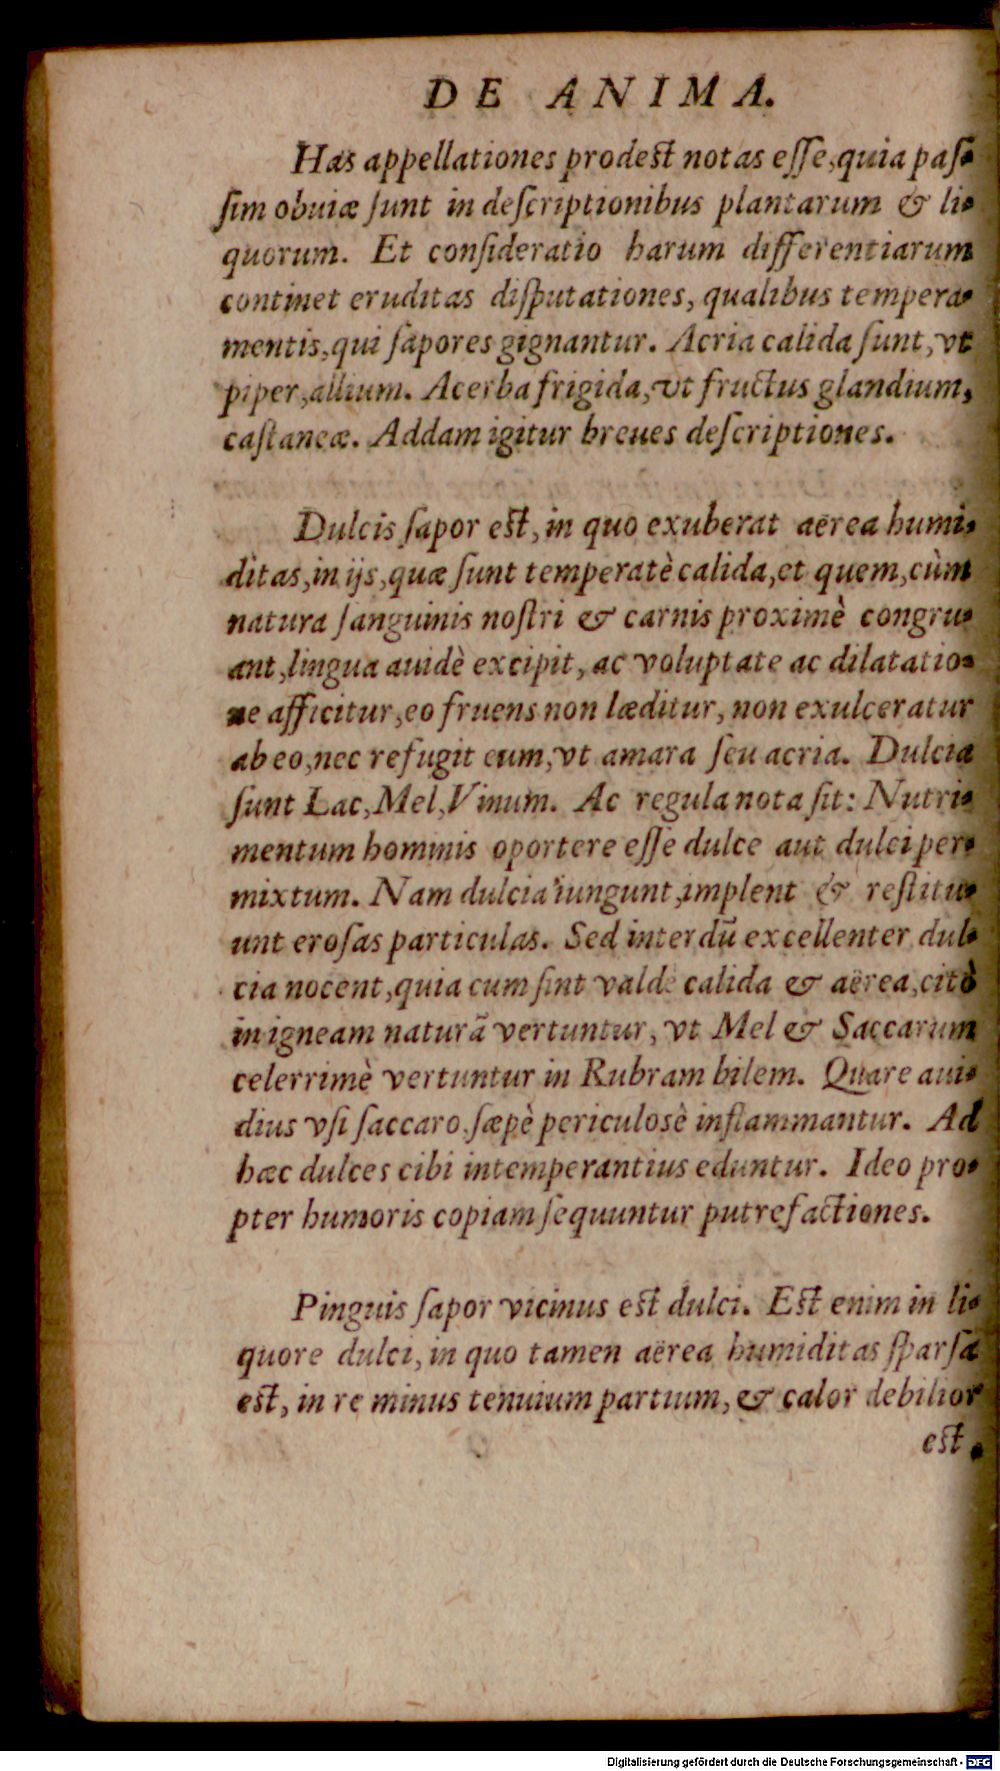 DE ANIMA.
Has appellationes prodest notas esse, quia pas-
sim obuiæ sunt in descriptionibus plantarum & li-
quorum. Et consideratio harum differentiarum
continet eruditas disputationes, qualibus tempera-
mentis, qui sapores gignantur. Acria calida sunt, vt
piper, allium. Acerba frigida, vt fructus glandium,
castaneæ. Addam igitur breues descriptiones.
Dulcis sapor est, in quo exuberat aërea humi-
ditas, in ijs, quæ sunt temperatè calida, et quem, cùm
natura sanguinis nostri & carnis proximè congru-
ant, lingua auidè excipit, ac voluptate ac dilatatio-
ne afficitur, eo fruens non læditur, non exulceratur
ab eo, nec refugit eum, vt amara seu acria. Dulcia
sunt Lac, Mel, Vinum. Ac regula nota sit: Nutri-
mentum hominis oportere esse dulce aut dulci per-
mixtum. Nam dulcia iungunt, implent & restitu-
unt erosas particulas. Sed interdū excellenter dul-
cia nocent, quia cum sint valde calida & aërea, citò
in igneam naturā vertuntur, vt Mel & Saccarum
celerrimè vertuntur in Rubram bilem. Quare aui-
dius vsi saccaro, sæpè periculosè inflammantur. Ad
hæc dulces cibi intemperantius eduntur. Ideo pro-
pter humoris copiam sequuntur putrefactiones.
Pinguis sapor vicinus est dulci. Est enim in li-
quore dulci, in quo tamen aërea humiditas sparsa
est, in re minus tenuium partium, & calor debilior
est.
Digitalisierung gefördert durch die Deutsche Forschungsgemeinschaft - DFG